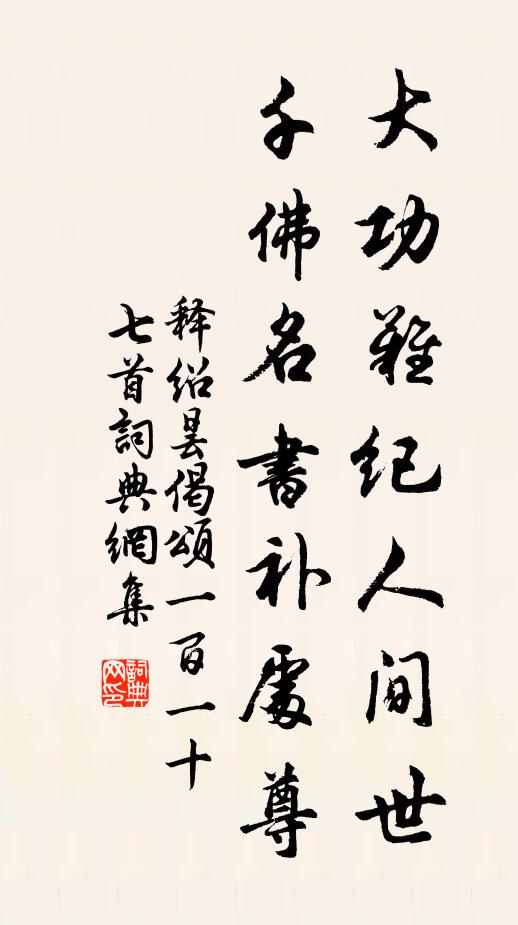 大功难纪人间世
千佛名書补處尊
释绍昙偈颂一百一十
七首詞典網集
詞典网印